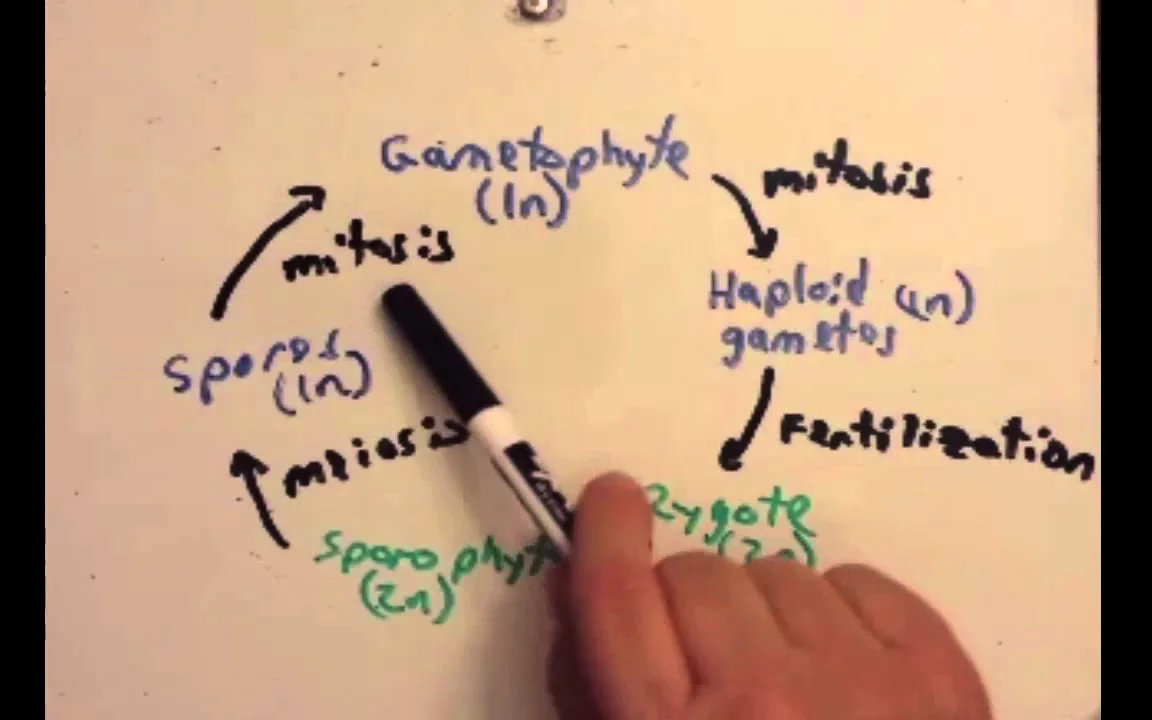 Gametophyte
(1n)
mitosis
mitosis
Haploid (1n)
gametes
Spores
(1n)
Fertilization
meiosis
Zygote
(2n)
Sporophyt
(2n)